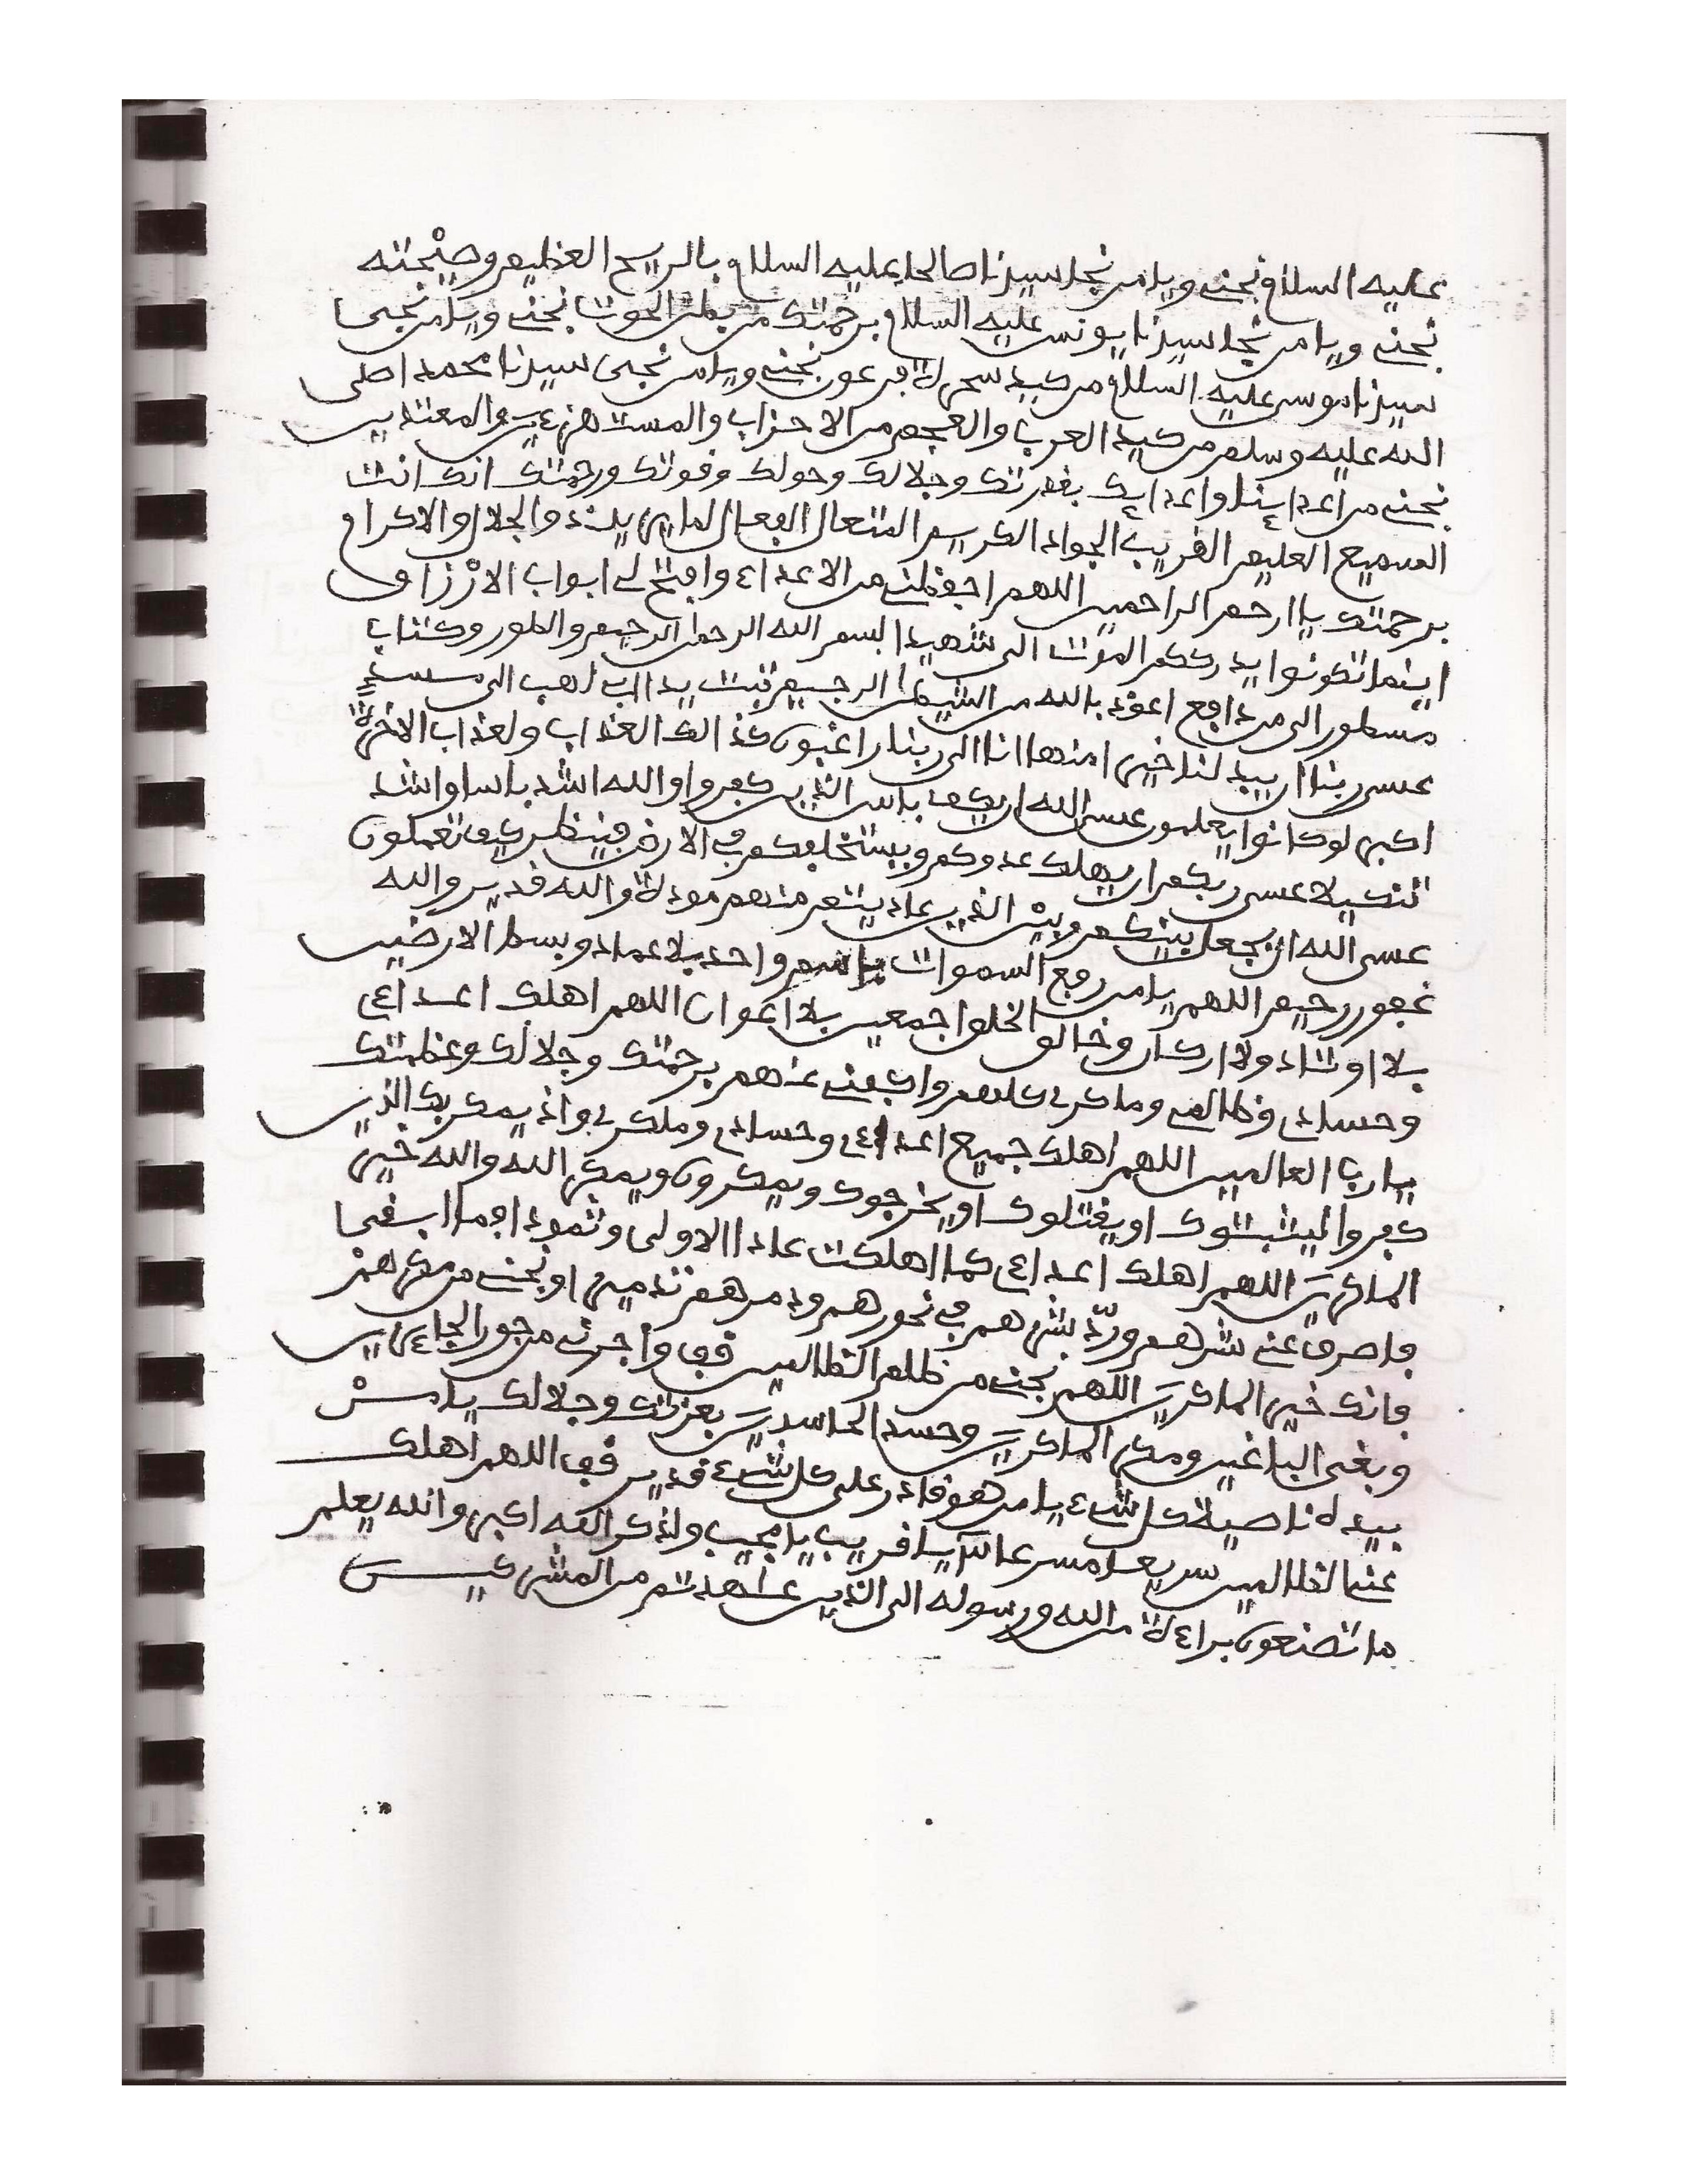 عليه السلام نجني ويا من نجا سيدنا صالحا عليه السلام بالريح العظيم وصيحته
نجني ويا من نجا سيدنا يونس عليه السلام برحمتك من بطن الحوت نجني ويا من نجى
سيدنا موسى عليه السلام من كيد سحرة فرعون نجني ويا من نجى سيدنا محمد اصلى
الله عليه وسلم من كيد العرب والعجم من الاحزاب والمستهزءين والمعتدين
نجني من اعداينا واعدايك بقدرتك وجلالك وحولك وقوتك ورحمتك انك انت
السميع العليم القريب الجواد الكريم المتعال الفعال لما يريد ذو الجلال والاكرام
برحمتك يا ارحم الراحمين اللهم احفظني من الاعداء وافتح لي ابواب الارْزاق
اينما تكونوا يدرككم الموت الى شهيدا بسم الله الرحمن الرحيم والطور وكتاب
مسطور الى من دافع اعوذ بالله من الشيطن الرجيم تبت يدا ابي لهب الى مسد
عسى ربنا ان يبدلنا خيرا منها انا الى ربنا راغبون كذالك العذاب ولعذاب الاخرة
اكبر لو كانوا يعلمون عسى الله ان يكف باس الذين كفروا والله اشد باسا واشد
تنكيلا عسى ربكم ان يهلك عدوكم ويستخلفكم في الارض فينظر كيف تعملون
عسى الله ان يجعل بينكم وبين الذين عاديتم منهم مودة والله قدير والله
غفور رحيم اللهم يا من رفع السموات باسم واحد بلا عماد وبسط الارضين
بلا اوتاد ولا اركان وخالق الخلق اجمعين بلا اعوان اللهم اهلك اعداءي
وحسادي وظالمي وماكري كلهم واكفني عنهم برحمتك وجلالك وعظمتك
يا رب العالمين اللهم اهلك جميع اعداءي وحسادي وماكري واذ يمكر بك الذين
كفروا ليثبتوك او يقتلوك او يخرجوك ويمكرون ويمكر الله والله خير
الماكرين اللهم اهلك اعداءي كما اهلكت عادا الاولى وثمودا فما ابقى
فاصرف عني شرهم وردّ بشرهم في نحورهم ودمرهم تدميرا ونجني من مكرهمْ
فانك خير الماكرين اللهم نجني من ظلم الظالمين قف واجرني من جور الجاءرين
وبغى الباغين ومكر الماكرين وحسد الحاسدين بعزتك وجلالك يا منْ
بيده ناصية كل شيء يا من هو قادر على كل شيء قدير قف اللهم اهلك
عنا الظالمين سريعا مسرعا يا قريب يا مجيب ولذكر الله اكبر والله يعلم
ما تصنعون براءة من الله ورسوله الى الذين عاهدتم من المشركين